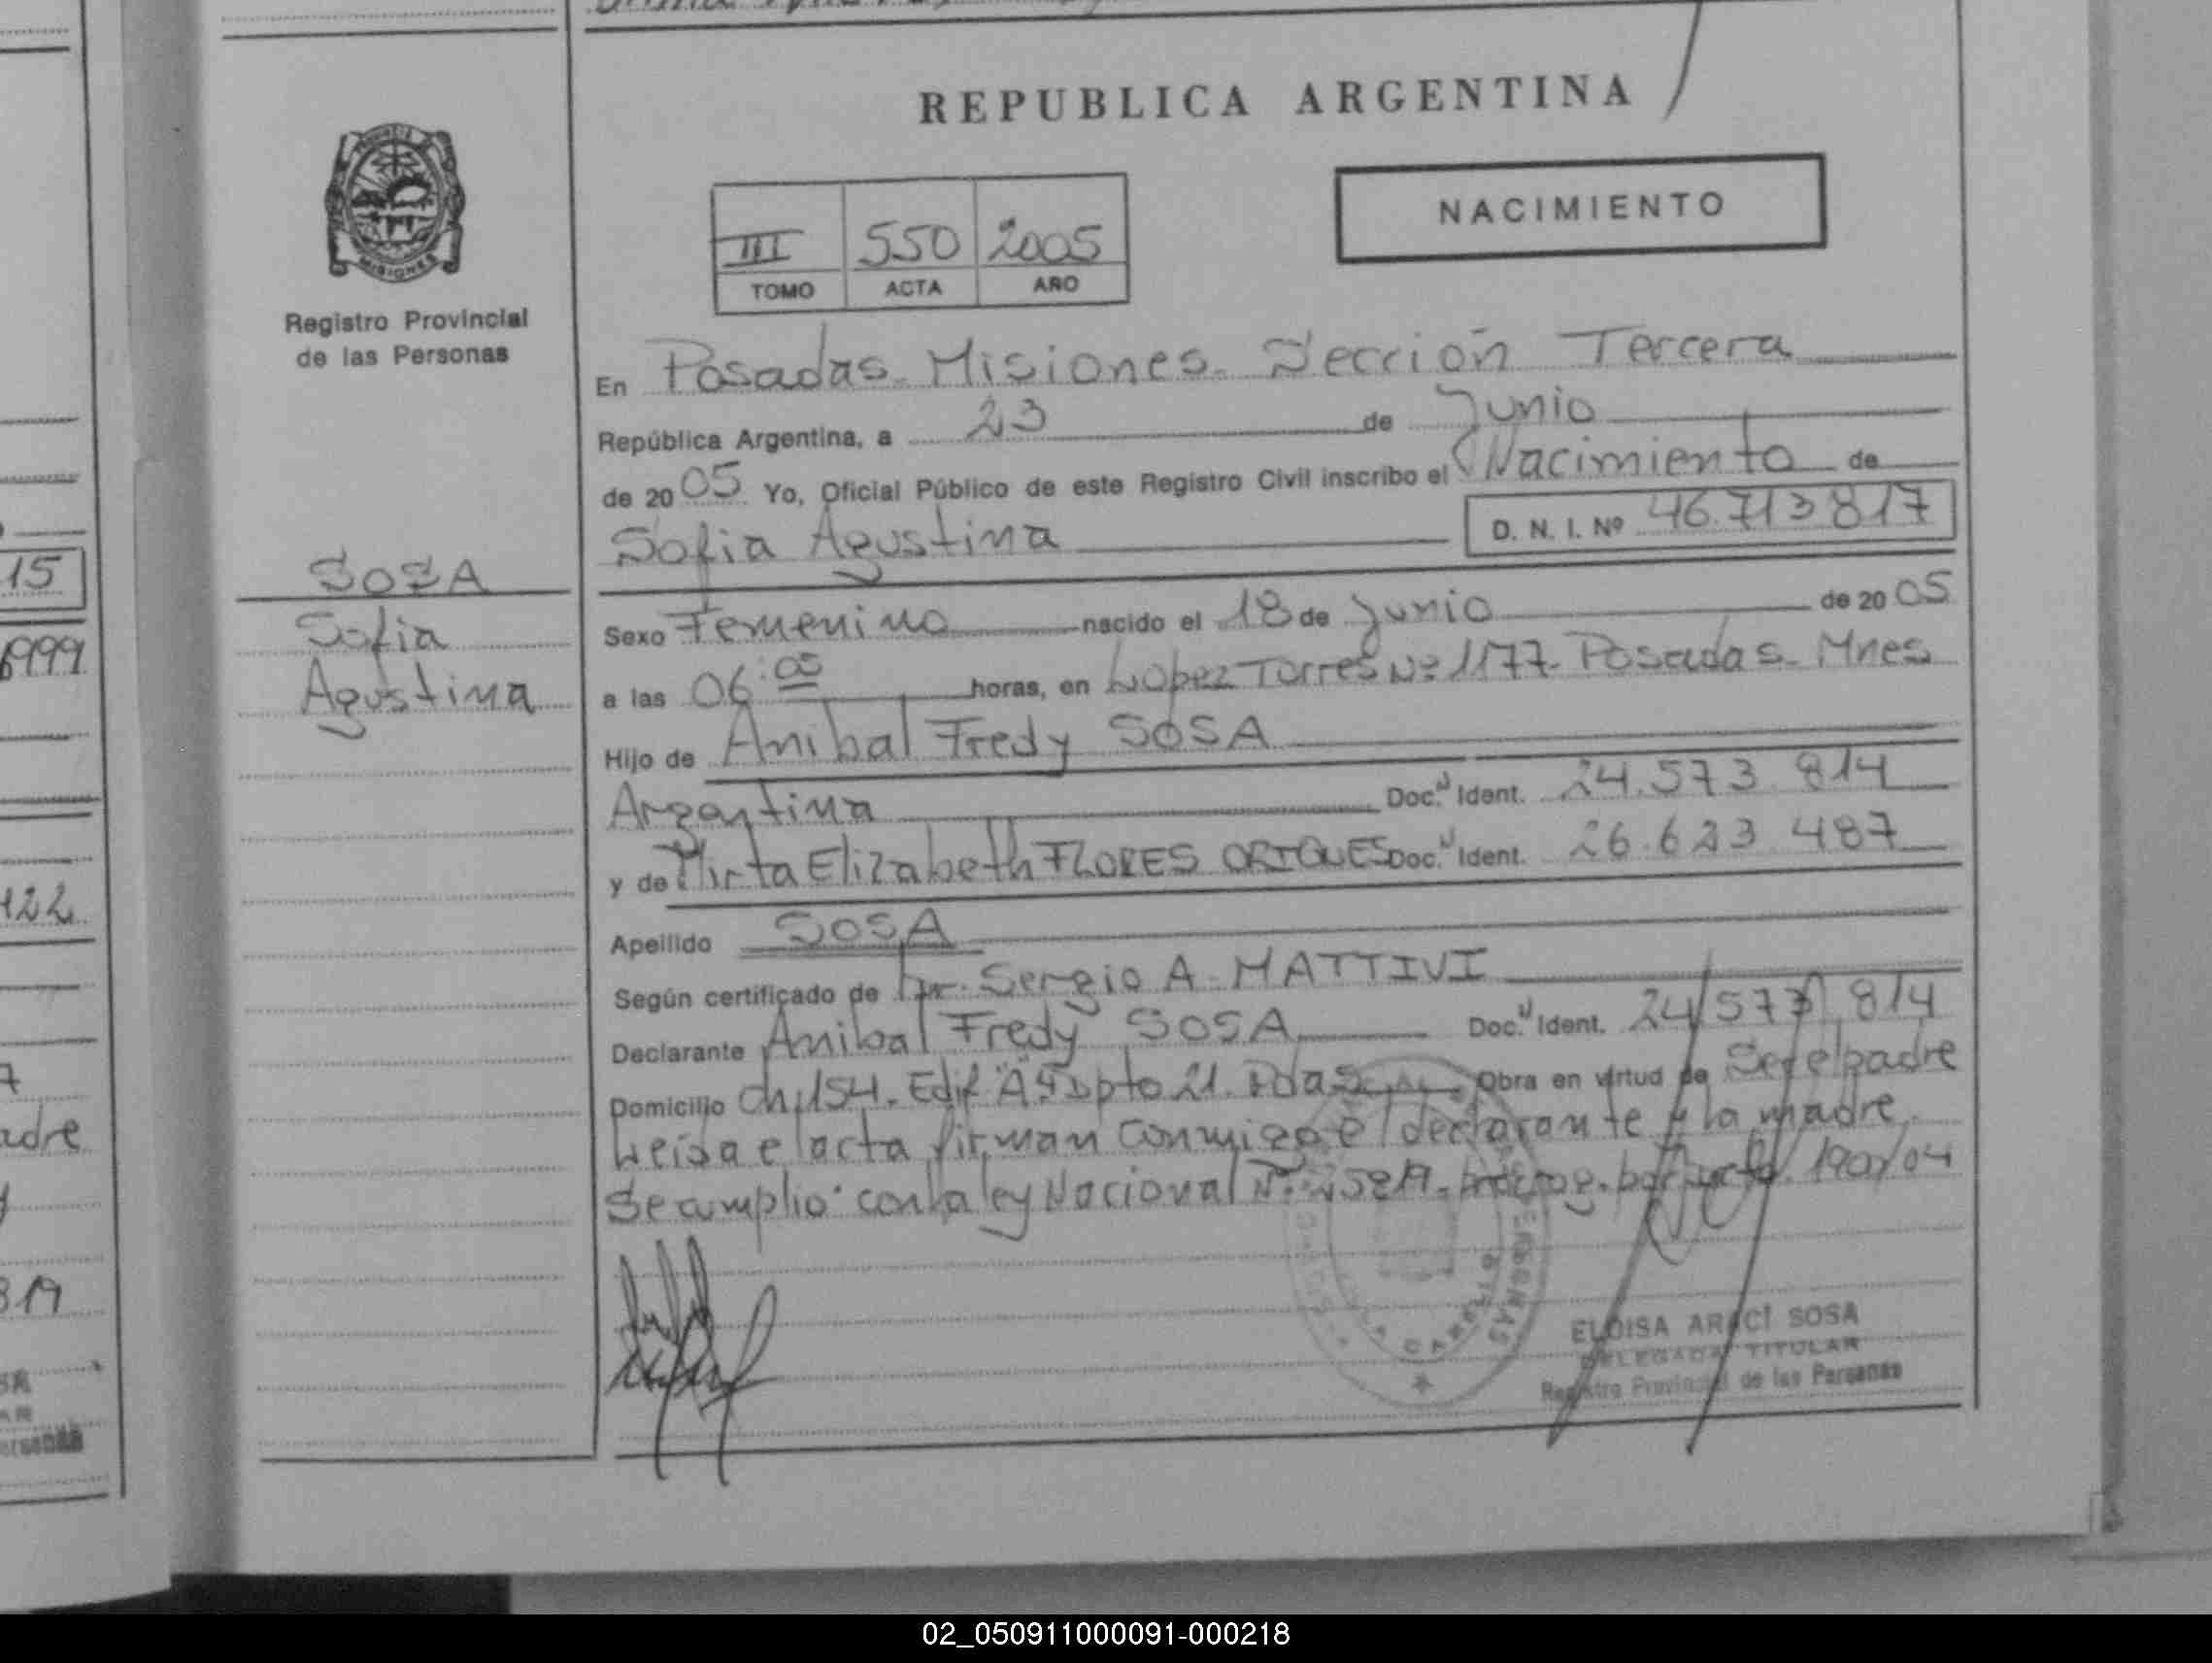 REPUBLICA ARGENTINA
NACIMIENTO
III 550 2005
TOMO ACTA AÑO
MISIONES
Registro Provincial
de las Personas
SOSA
Sofia
Agustina
En Posadas - Misiones - Sección Tercera
República Argentina, a 23 de Junio
de 2005 Yo, Oficial Público de este Registro Civil inscribo el Nacimiento de
Sofia Agustina D. N. I. Nº 46.713817
Sexo Femenino nacido el 18 de Junio de 2005
a las 06:05 horas, en Lopez Torres Nº 1177 - Posadas - Mnes
Hijo de Anibal Fredy SOSA
Argentina Doc. Ident. 24.573.814
y de Mirta Elizabeth FLORES ORIQUES Doc. Ident. 26.623.487
Apellido SOSA
Según certificado de Dr. Sergio A. MATTIVI
Declarante Anibal Fredy SOSA Doc. Ident. 24.573.814
Domicilio ch. 154. Edif "A" Dpto 21. Pdas Obra en virtud de Ser el padre
Leida el acta firman conmigo el declarante y la madre.
Se cumplio con la ley Nacional
ELOISA ARACÍ SOSA
DELEGADA TITULAR
Registro Provincial de las Personas
15
6999
422
7
adre
819
02_050911000091-000218